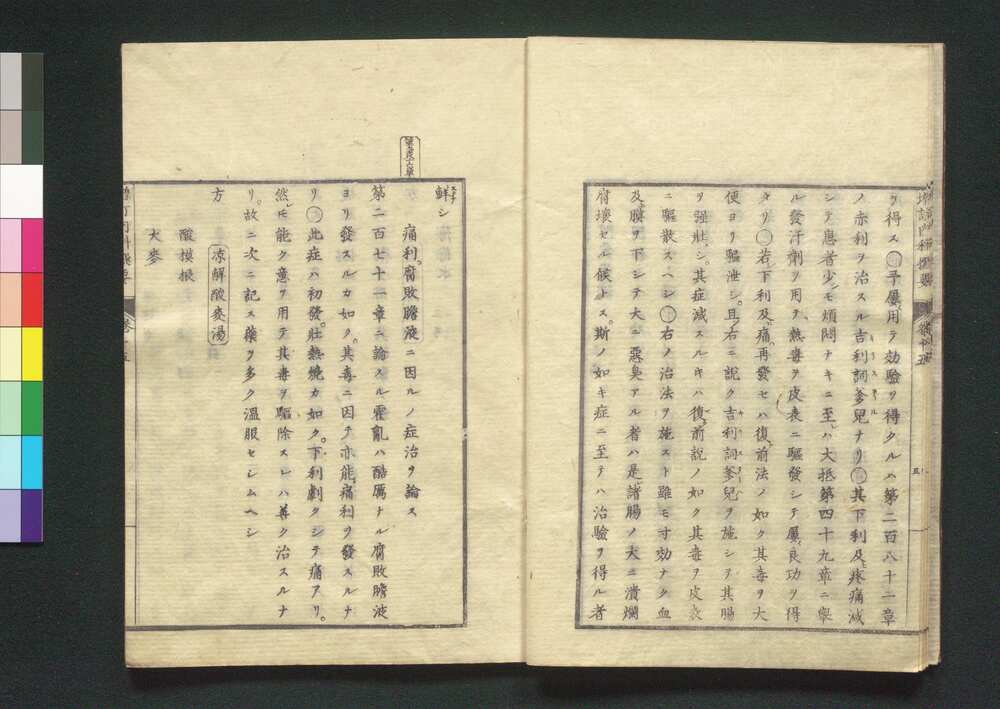 ヲ得ス○予屢用テ効驗ヲ得タルハ第二百八十二章
ノ赤利ヲ治スル吉利詞爹兒ナリ○其下利及疼痛減
シテ患者少シモ煩悶ナキニ至ハ大抵第四十九章ニ擧
ル發汗劑ヲ用テ熱毒ヲ皮表ニ驅發シテ屢良功ヲ得
タリ○若下利及痛再發セハ復前法ノ如ク其毒ヲ大
便ヨリ驅泄シ且右ニ說ク吉利詞爹兒ヲ施シテ其腸
ヲ强壯シ其症減スルキハ復前說ノ如ク其毒ヲ皮表
ニ驅散スヘシ○右ノ治法ヲ施スト雖モ寸効ナク血
及膿ヲ下シテ大ニ惡臭アル者ハ是諸腸ノ大ニ潰爛
腐壞セル候トス斯ノ如キ症ニ至テハ治驗ヲ得ル者
五
鮮シ
痛利腐敗膽液ニ因ルノ症治ヲ論ス
第二百七十一章ニ論スル霍亂ハ酷厲ナル腐敗膽液
ヨリ發スルカ如ク其毒ニ因テ亦能痛利ヲ發スルナ
リ○此症ハ初發壯熱燒カ如ク下利劇クシテ痛アリ
然モ能ク意ヲ用テ其毒ヲ驅除スレハ善ク治スルナ
リ故ニ次ニ記ス藥ヲ多ク溫服セシムヘシ
涼解酸麥湯
方
酸摸根
大麥